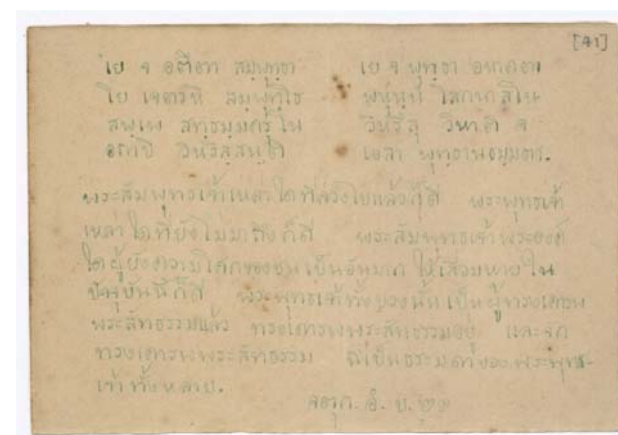 [41]
เย จ อตีตา สมฺพุทฺธา เย จ พุทฺธา อนาคตา
โย เจตรหิ สมฺพุทฺโธ พหุนฺนํ โสกนาสโน
สพฺเพ สทฺธมฺมครุโน วิหรึสุ วิหาติ จ
อถาปิ วิหริสฺสนฺติ เอสา พุทฺธานธมฺมตา.
พระสัมพุทธเจ้าเหล่าใดที่ล่วงไปแล้วก็ดี พระพุทธเจ้า
เหล่าใดที่ยังไม่มาถึงก็ดี พระสัมพุทธเจ้าพระองค์
ใดผู้ยังความโศกของชนเป็นอันมาก ให้เสื่อมหายใน
ปัจจุบันนี้ก็ดี พระพุทธเจ้าทั้งปวงนั้นเป็นผู้ทรงเคารพ
พระสัทธรรมแล้ว ทรงเคารพพระสัทธรรมอยู่ และจัก
ทรงเคารพพระสัทธรรม นี่เป็นธรรมดาของพระพุทธ-
เจ้าทั้งหลาย.
จตุก. อํ. ๒๑